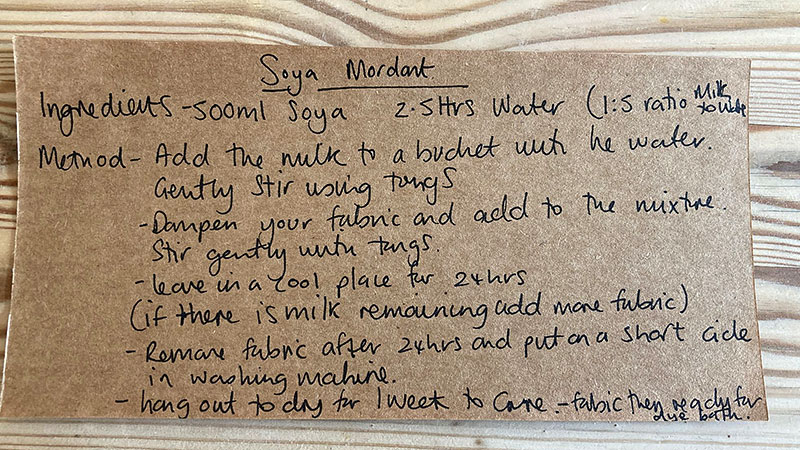 Soya Mordant
Ingredients - 500ml Soya 2.5Hrs Water (1:5 ratio Milk to Water
Method - Add the milk to a bucket with he water.
Gently Stir using tongs
- Dampen your fabric and add to the mixture.
Stir gently with tongs.
- leave in a cool place for 24hrs
(if there is milk remaining add more fabric)
- Remove fabric after 24hrs and put on a short cicle
in washing machine.
- hang out to dry for 1 week to Cure. - fabic then ready for
dye bath.